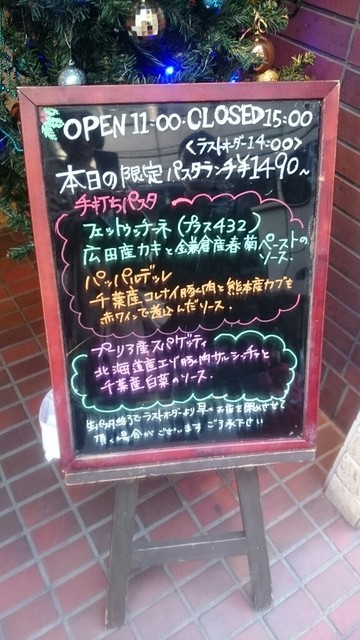 OPEN 11:00 CLOSED 15:00
<ラストオーダー14:00>
本日の限定 パスタランチ¥1490~
手打ちパスタ
フェットゥッチーネ (プラス432)
広田産カキと鎌倉産春菊ペーストの
ソース.
パッパルデッレ
千葉産 豚肉と熊本産カブを
赤ワインで煮込んだソース.
プーリア産スパゲッティ
北海道産エゾ豚肉サルシッチャと
千葉産白菜のソース.
生パスタ終了でラストオーダーより早めお店を閉めさせて
頂く場合がございます ご了承下さい